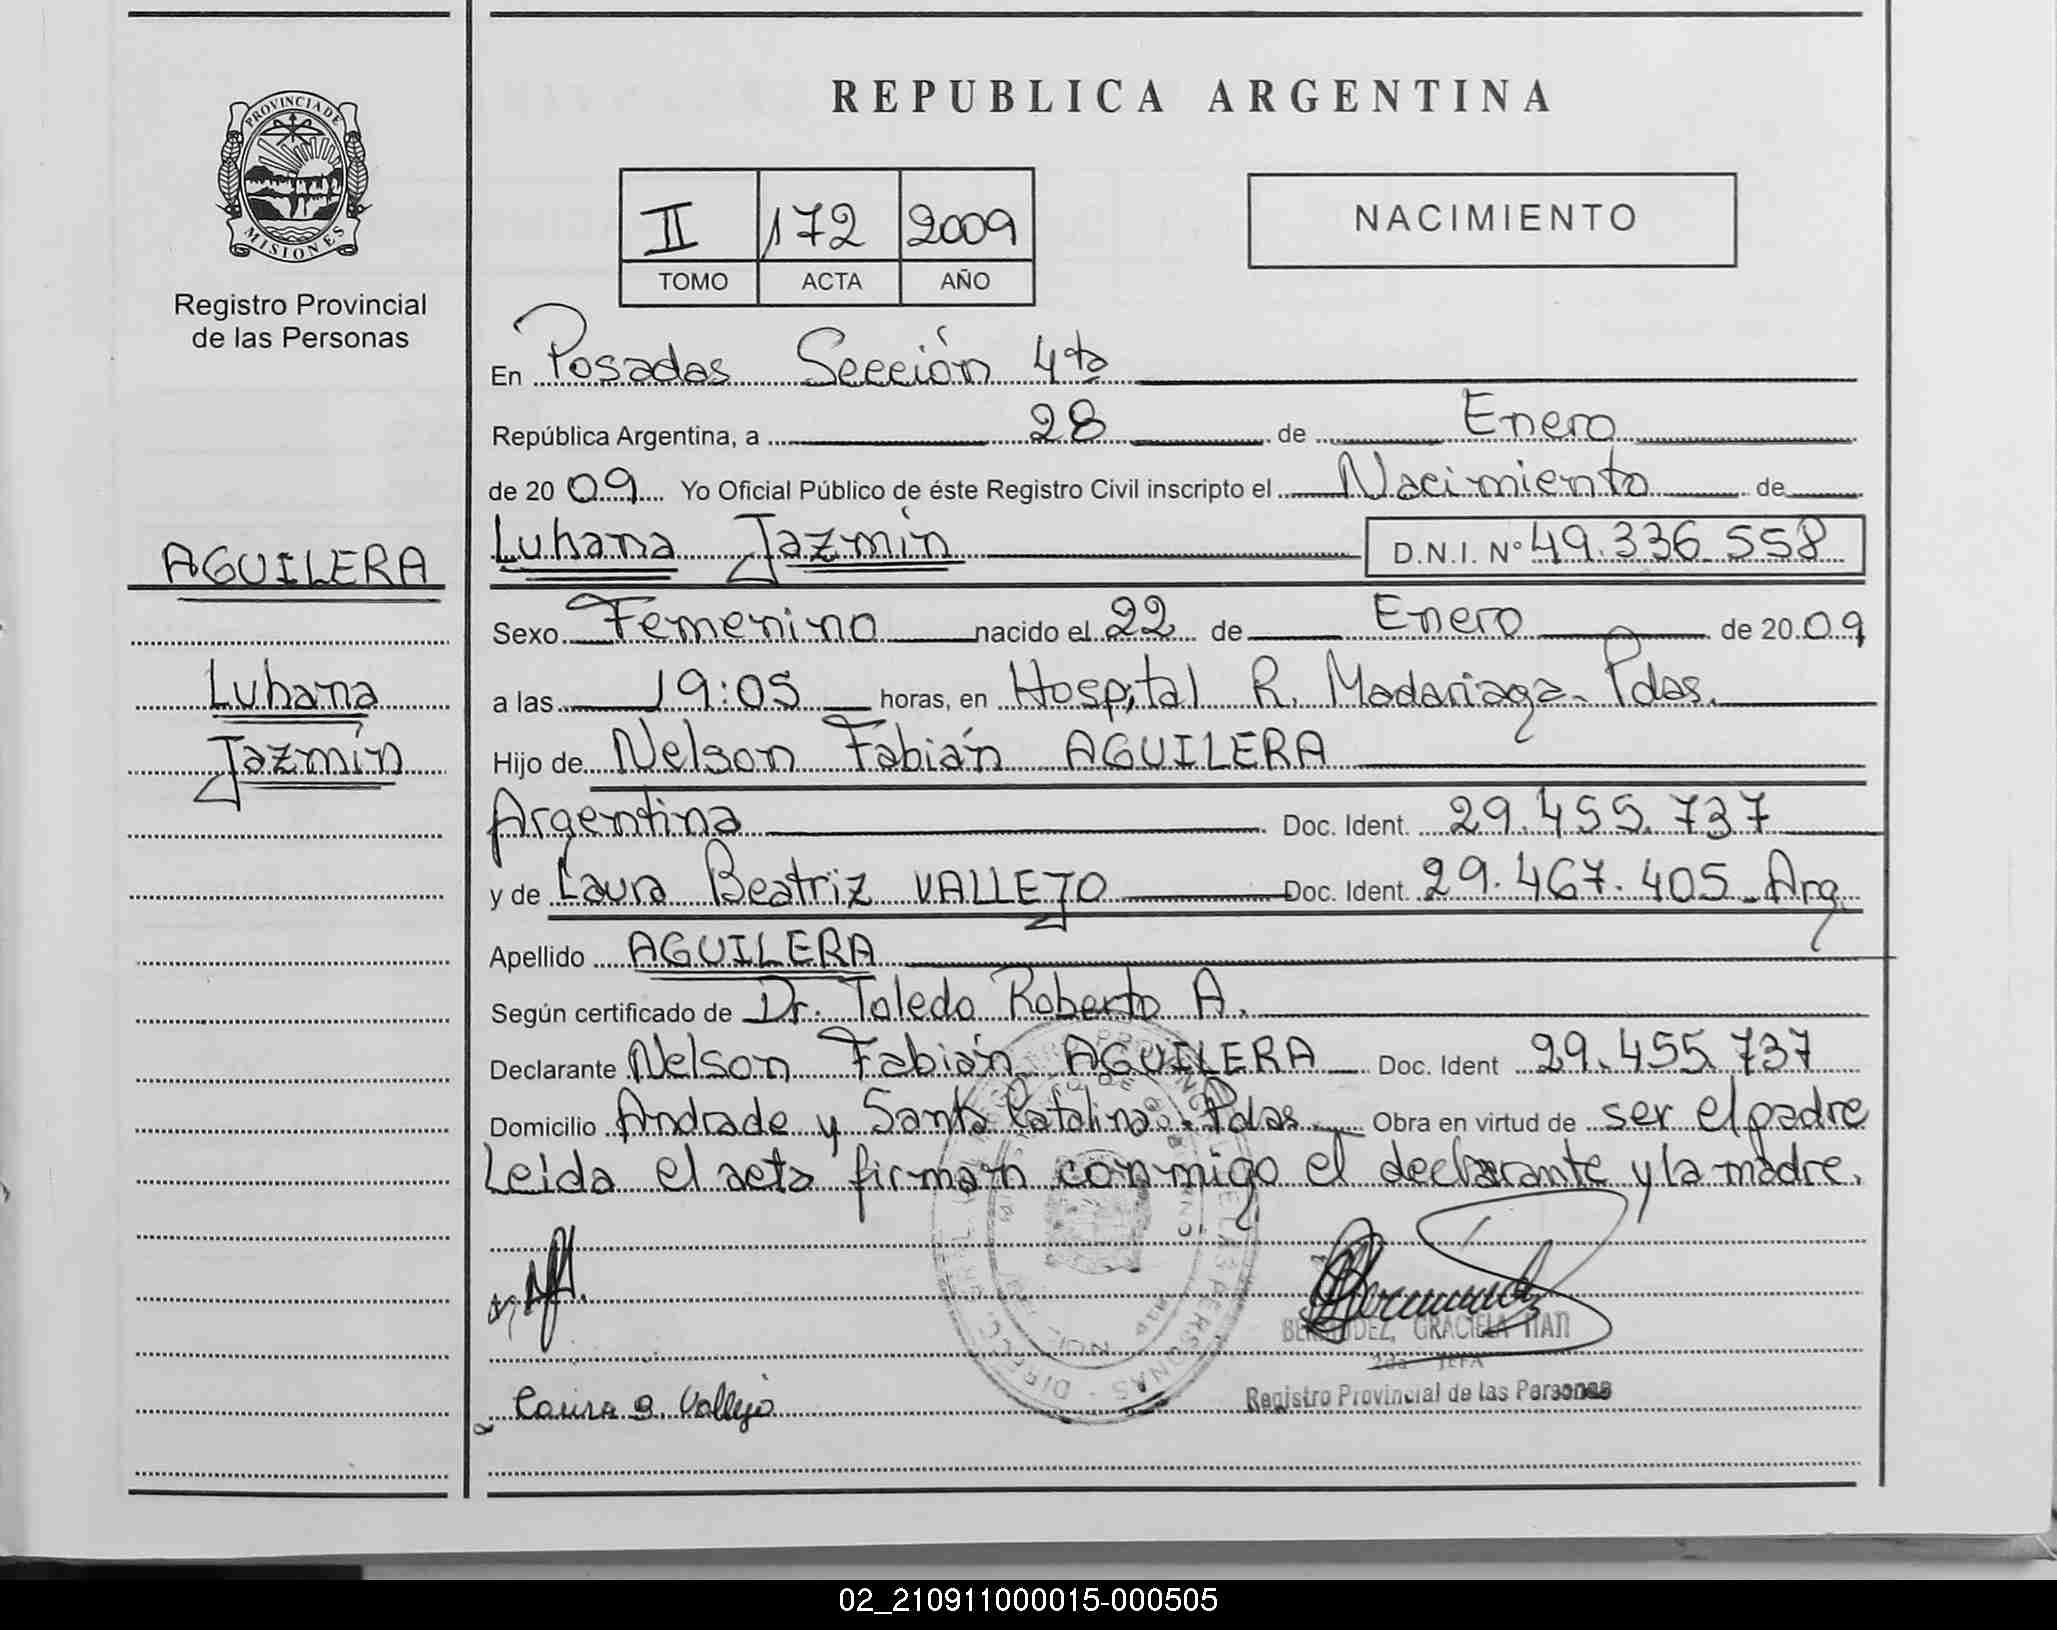 PROVINCIA DE
MISIONES
Registro Provincial
de las Personas
AGUILERA
Luhana
Jazmín
REPUBLICA ARGENTINA
II 172 2009
TOMO ACTA AÑO
NACIMIENTO
En Posadas Sección 4ta
República Argentina, a 28 de Enero
de 20 09 Yo Oficial Público de éste Registro Civil inscripto el Nacimiento de
Luhana Jazmín D.N.I. Nº 49.336.558
Sexo Femenino nacido el 22 de Enero de 20 09
a las 19:05 horas, en Hospital R. Madariaga - Pdas.
Hijo de Nelson Fabián AGUILERA
Argentina Doc. Ident. 29.455.737
y de Laura Beatriz VALLEJO Doc. Ident. 29.467.405 - Arg.
Apellido AGUILERA
Según certificado de Dr. Toledo Roberto A.
Declarante Nelson Fabián AGUILERA Doc. Ident 29.455.737
Domicilio Andrade y Santa Catalina - Pdas. Obra en virtud de ser el padre
Leida el acta firman conmigo el declarante y la madre.
GRACIELA
2da JEFA
Laura B. Vallejo
Registro Provincial de las Personas
02_210911000015-000505